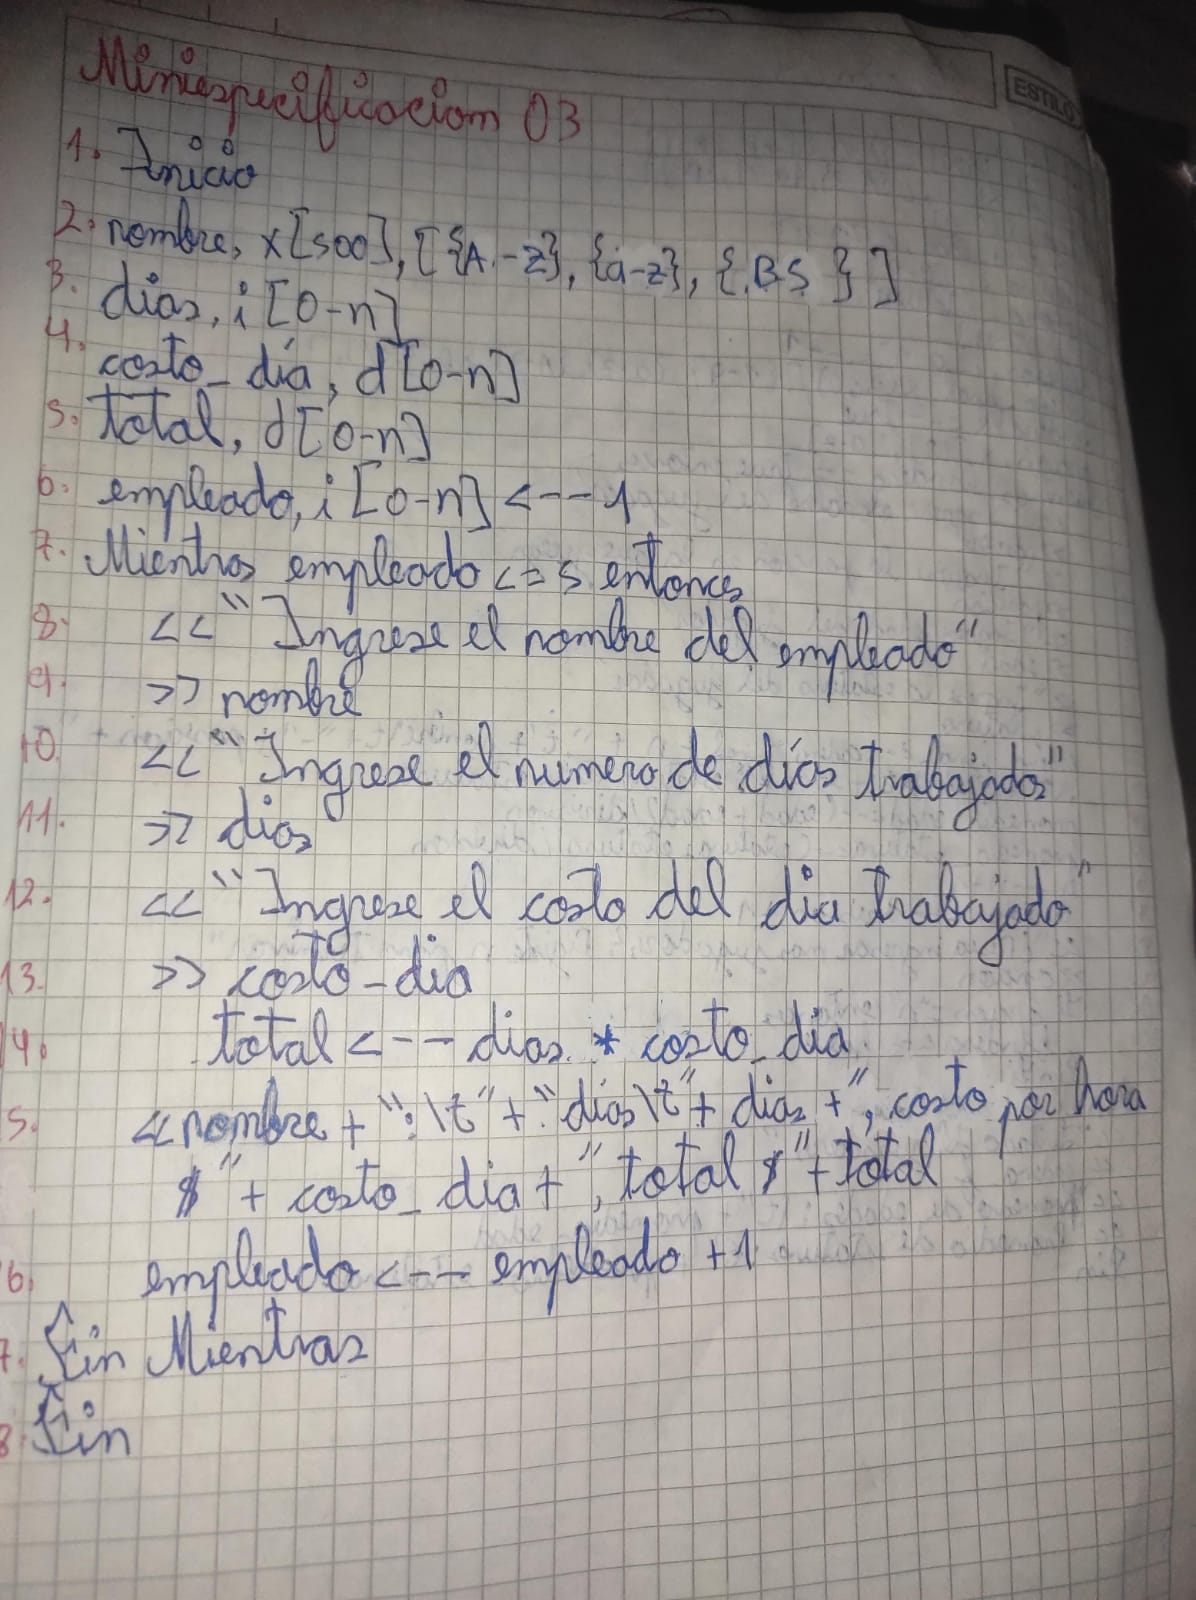 ESTILO
Miniespecificaciom 03
1. Inicio
2. nombre, x[500], [{A-Z}, {a-z}, {BS}]
3. dias, i [0-n]
4. costo_día, d[0-n]
5. total, d[0-n]
6. empleado, i [0-n] <-- 1
7. Mientras empleado <= 5 entonces
8. << "Ingrese el nombre del empleado"
9. >> nombre
10. << "Ingrese el numero de días trabajados"
11. >> dias
12. << "Ingrese el costo del dia trabajado"
13. >> costo_dia
14. total <-- dias * costo_dia
5. << nombre + ":\t" + "dias\t" + dias + ", costo por hora
$" + costo_dia + ", total $" + total
6. empleado <-- empleado + 1
7. Fin Mientras
8 Fin